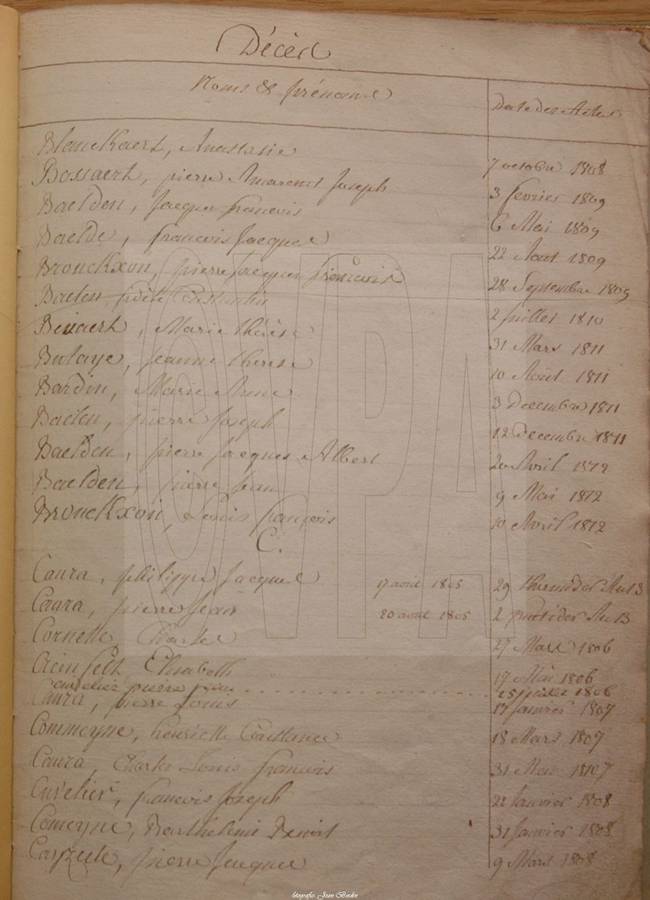 Décès
Noms & prénoms
Date des Actes
Blanckaert, Anastasie 7 octobre 1808
Bossaert, pierre Amarent Joseph 3 fevrier 1809
Baelden, Jacques francois 6 Mai 1809
Baelde, francois Jacques 22 Aout 1809
Bronckxon, pierre Jacques francois 28 Septembre 1809
Baelen 2 juillet 1810
Marie thérèse 31 Mars 1811
Butaye, jeanne therese 10 Août 1811
Bardin, Marie Anne 3 decembre 1811
Baelen, pierre Joseph 12 decembre 1811
Baelden, pierre Jacques Albert 20 Avril 1812
Baelden, pierre Jean 9 Mai 1812
Bronckxon, Louis françois 10 Avril 1812
C.
Caura, philippe Jacques 17 aout 1805 29 thermidor An 13
Caura, pierre Jean 20 aout 1805 2 An 13
Cornette Charles 27 Mars 1806
Elisabeth 17 Mai 1806
Cuvelier pierre 1806
Caura, pierre Louis 17 janvier 1807
Commeyne, henriette Constance 18 Mars 1807
Caura, Charles Louis francois 31 Mai 1807
Cuvelier, francois Joseph 22 Janvier 1808
Comeyne, Barthelemi Benoit 31 Janvier 1808
Carpeele, pierre Jacques 9 Mars 1808
CVPA